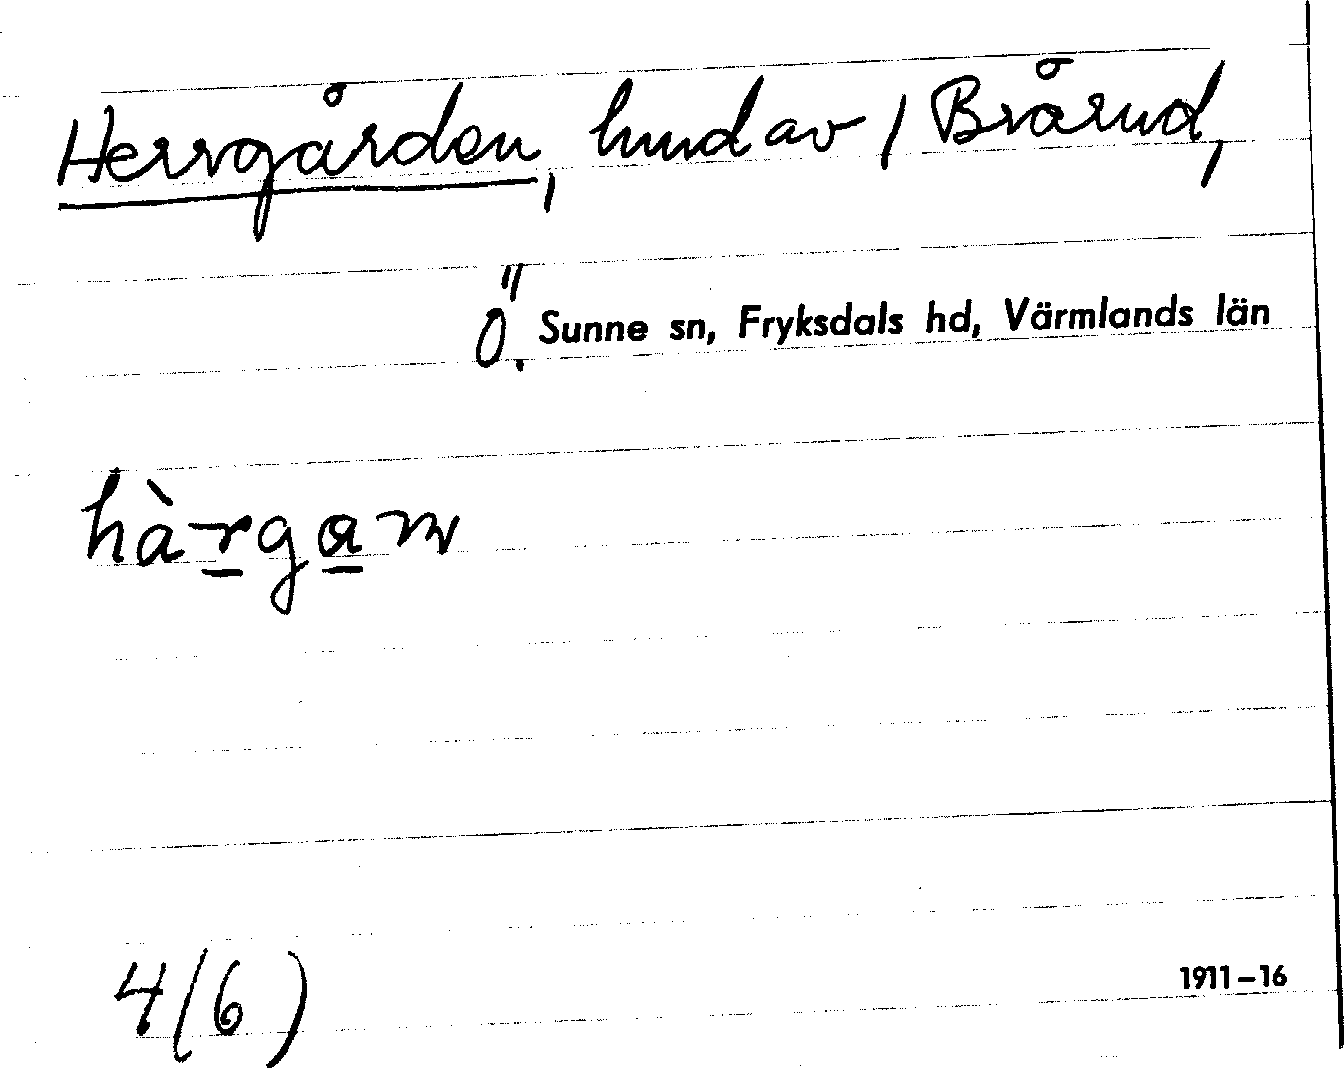 Herrgården, hmd av 1 Brårud,
Ö. Sunne sn, Fryksdals hd, Värmlands län
hàrgan
4(6)
1911–16